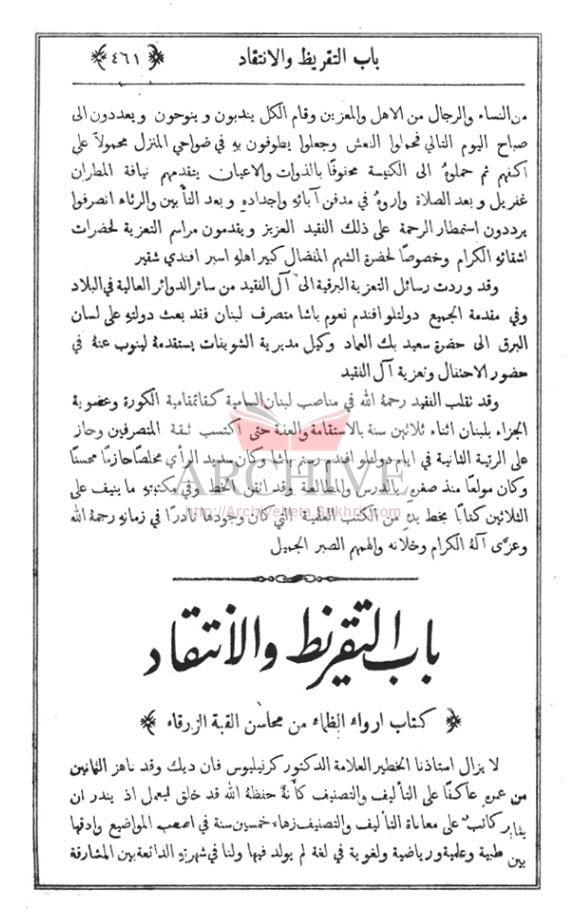 باب التقريظ والانتقاد ﴿٤٦١﴾
من النساء والرجال من الاهل والمعزين وقام الكل يندبون وينوحون ويعددون الى
صباح اليوم التالي فحملوا النعش وجعلوا يطوفون به في ضواحي المنزل محمولاً على
اكفهم ثم حملوهُ الى الكنيسة محفوفًا بالذوات والاعيان يتقدمهم نيافة المطران
غفريل وبعد الصلاة واروهُ في مدفن آبائهِ واجدادهِ وبعد التأبين والرثاء انصرفوا
يرددون استمطار الرحمة على ذلك الفقيد العزيز ويقدمون مراسم التعزية لحضرات
اشقائهِ الكرام وخصوصًا لحضرة الشهم المفضال كبير اهلهِ اسبر افندي شقير
وقد وردت رسائل التعزية البرقية الى آل الفقيد من سائر الدوائر العالية في البلاد
وفي مقدمة الجميع دولتلو افندم نعوم باشا متصرف لبنان فقد بعث دولتهِ على لسان
البرق الى حضرة سعيد بك العماد وكيل مديرية الشويفات يستقدمهُ لينوب عنهُ في
حضور الاحتفال وتعزية آل الفقيد
وقد تقلب الفقيد رحمهُ الله في مناصب لبنان السامية كقائمقامية الكورة وعضوية
الجزاء بلبنان اثناء ثلاثين سنة بالاستقامة والعفة حتى اكتسب ثقة المتصرفين وحاز
على الرتبة الثانية في ايام دولتلو افندم رستم باشا وكان سديد الرأي مخلصًا حازمًا محسنًا
وكان مولعًا منذ صغرهِ بالدرس والمطالعة وقد اتقن الخط وفي مكتبتهِ ما ينيف على
الثلاثين كتابًا بخط يدهِ من الكتب العلمية التي كان وجودها نادرًا في زمانهِ رحمهُ الله
وعزَّى آلهُ الكرام وخلانهُ والهمهم الصبر الجميل
ARCHIVE
باب التقريظ والانتقاد
﴿ كتاب ارواء الظماء من محاسن القبة الزرقاء ﴾
لا يزال استاذنا الخطير العلامة الدكتور كرنيليوس فان ديك وقد ناهز الثمانين
من عمرهِ عاكفًا على التأليف والتصنيف كأنهُ حفظهُ الله قد خلق ليعمل اذ يندر ان
كاتب على معاناة التأليف والتصنيف زهاء خمسين سنة في اصعب المواضيع وادقها
بين طبية وعلمية ورياضية ولغوية في لغة لم يولد فيها ولنا في شهرتهِ الذائعة بين المشارقة